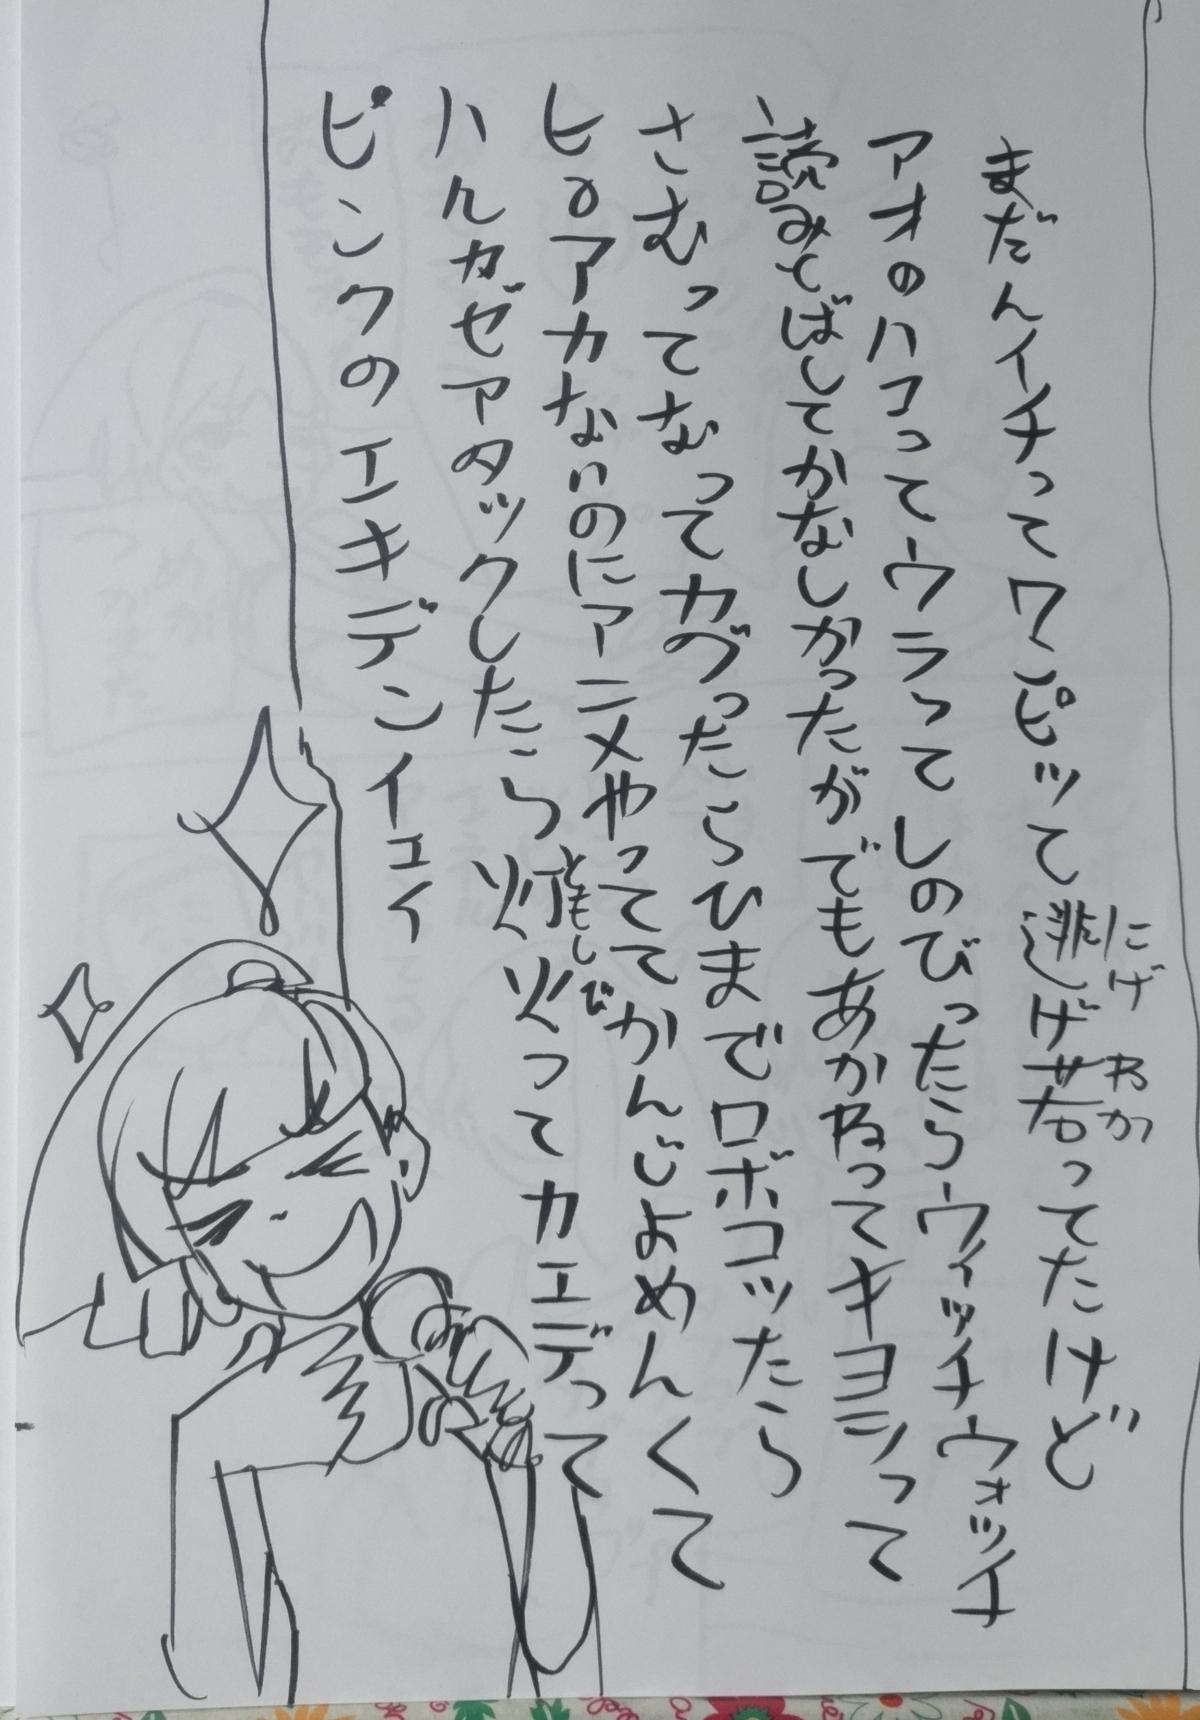 まだんイチってワンピッて逃げ若ってたけど
にげ わか
アオのハコってウラってしのびったらウィッチウォッチ
読みとばしてかなしかったがでもあかねってキヨシって
さむってなってカグったらひまでロボコッたら
ヒロアカないのにアニメやっててかんじよめんくて
ハルカゼアタックしたら灯火ってカエデって
ともしび
ピンクのエキデンイェイ